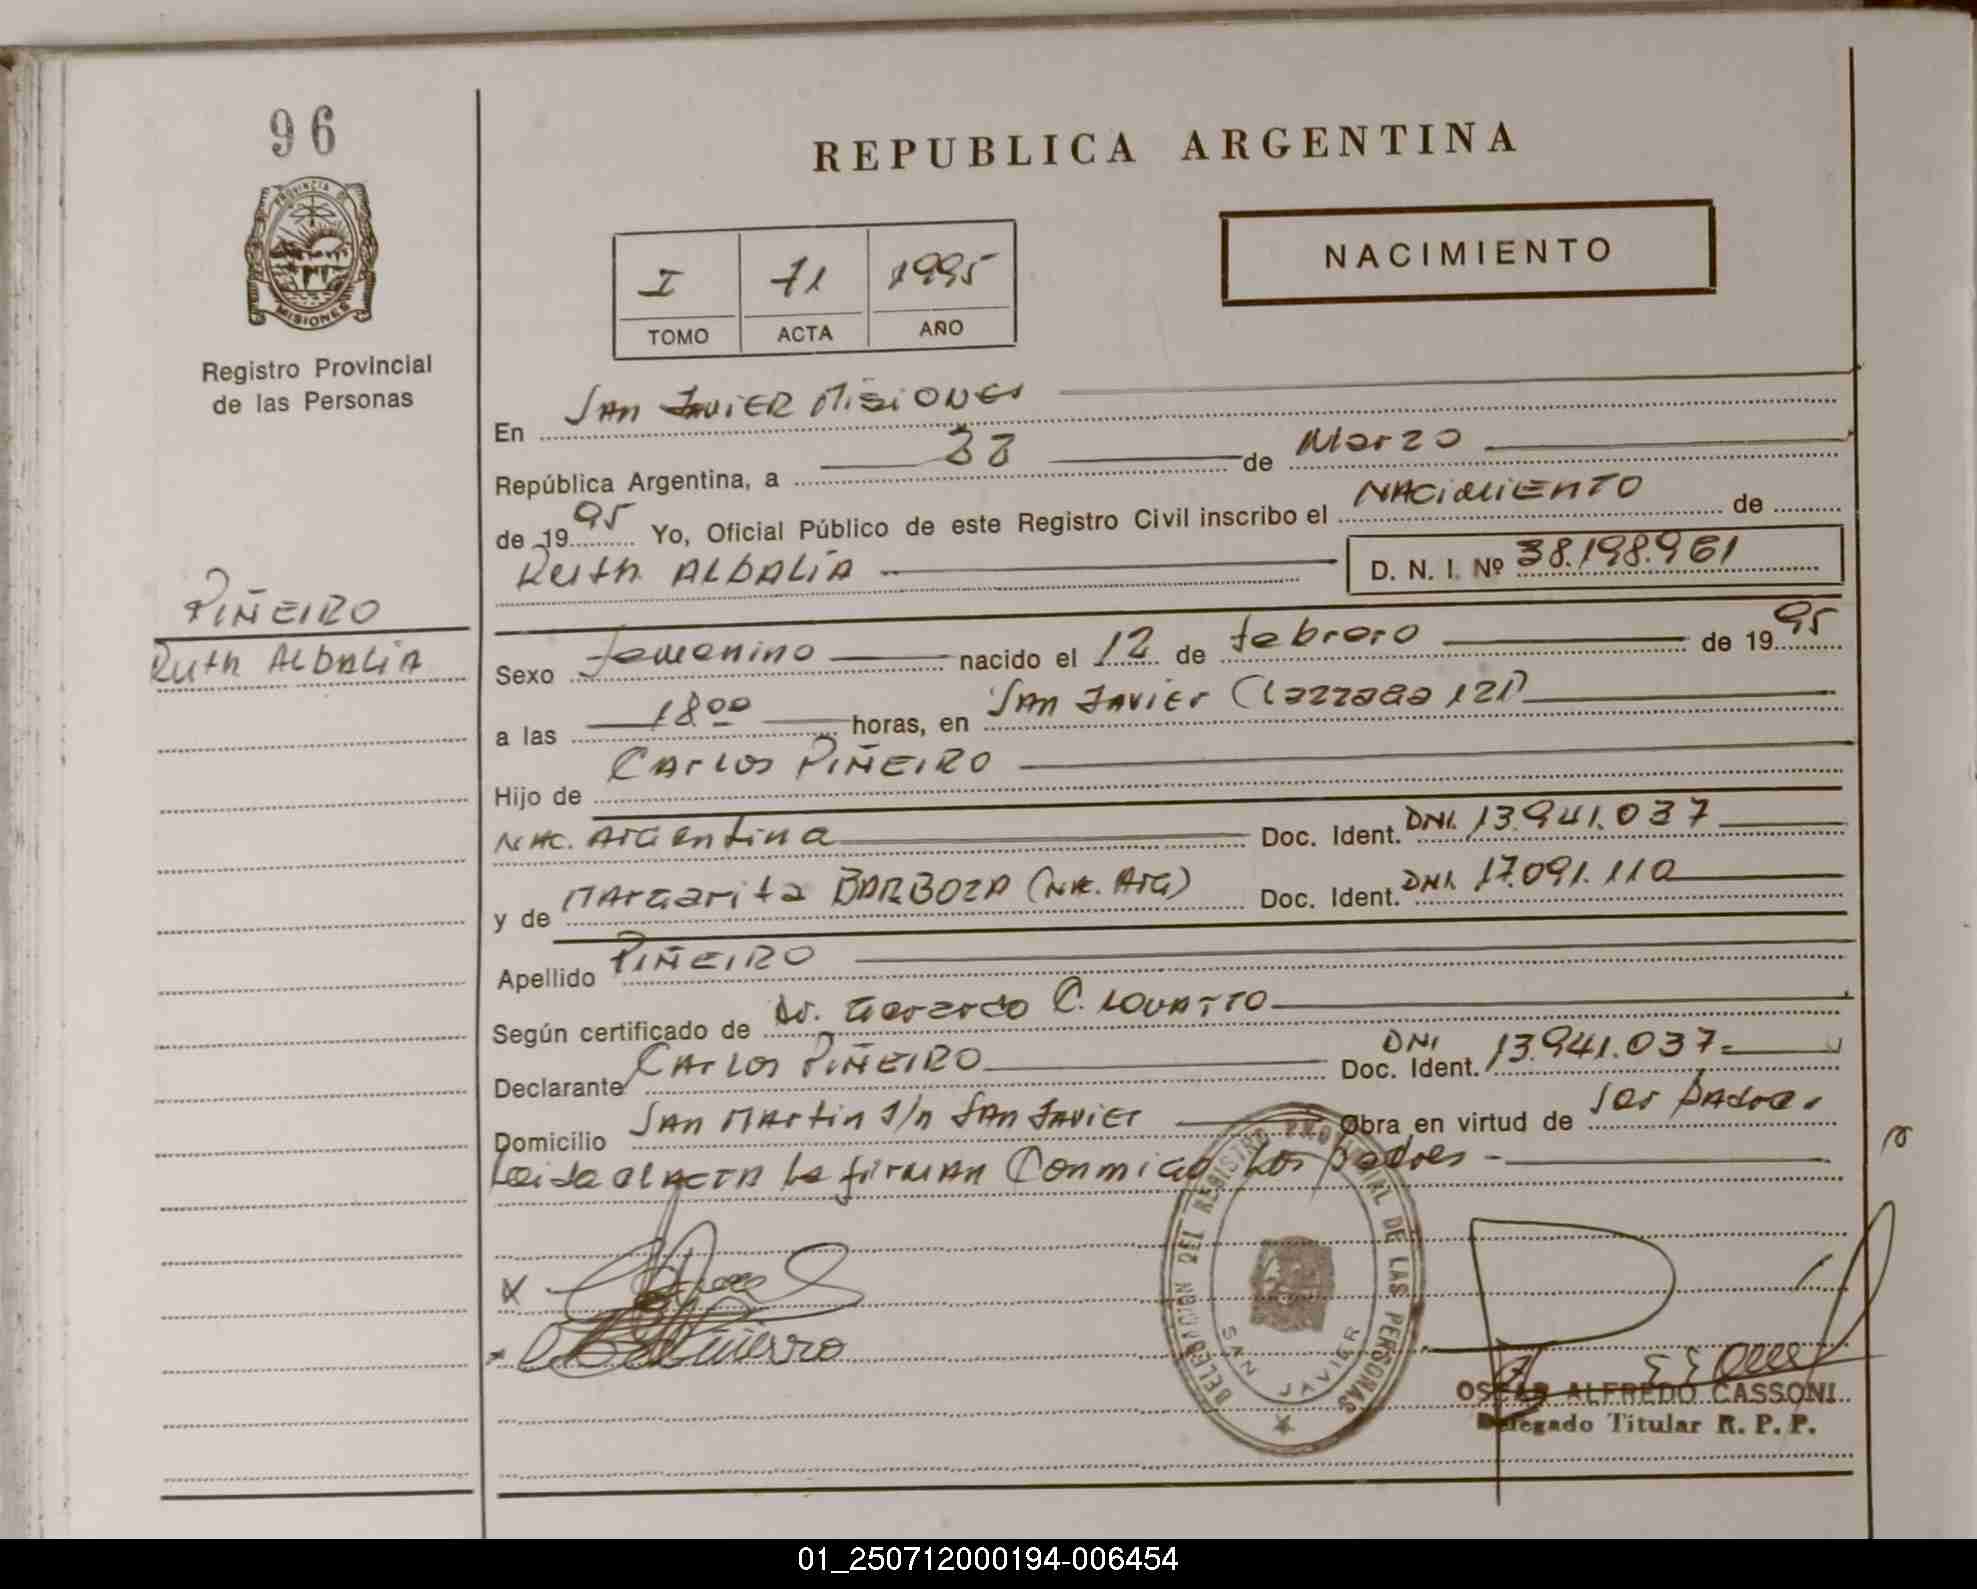 96
PROVINCIA DE
MISIONES
Registro Provincial
de las Personas
PIÑEIRO
Ruth ALBALIA
REPUBLICA ARGENTINA
NACIMIENTO
I 71 1995
TOMO ACTA AÑO
En SAN JAVIER MISIONES
República Argentina, a de Marzo
de 1995 Yo, Oficial Público de este Registro Civil inscribo el NACIMIENTO de
Ruth ALBALIA D. N. I. Nº 38.198.961
Sexo femenino nacido el 12 de febrero de 1995
a las 1800 horas, en SAN JAVIER (Lazzaga 121)
Hijo de CARLOS PIÑEIRO
NAC. ARGENTINA Doc. Ident. DNI. 13.941.037
y de MARGARITA BARBOZA (NAC. ARG) Doc. Ident. DNI. 17.091.110
Apellido PIÑEIRO
Según certificado de Dr. Gerardo C. LOVATTO
Declarante CARLOS PIÑEIRO Doc. Ident. DNI 13.941.037-
Domicilio SAN MARTIN S/N SAN JAVIER Obra en virtud de ser padre.
Leida el ACTA la firman Conmigo los padres -
DELEGACION DEL REGISTRO PROVINCIAL DE LAS PERSONAS
SAN JAVIER
OSCAR ALFREDO CASSONI
Delegado Titular R. P. P.
01_250712000194-006454